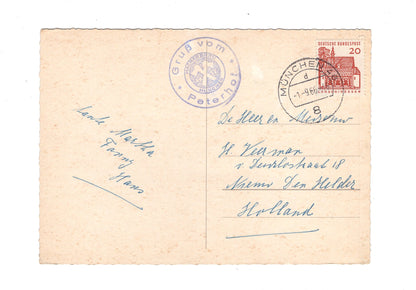 Gruß vom
Peterhof
MÜNCHEN
d
8
DEUTSCHE BUNDESPOST
20
tante Martha
Fanny
Hans
De Heer en Mevrouw
H Veerman
v
18
Nieuw Den Helder
Holland